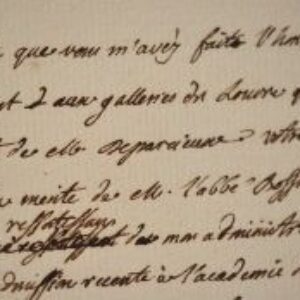 que vous m'avéz faite l'hon
t d aux galleries du Louvre q
t de M. Deparcieux votre
mente de M. l'abbé Boss
ressortissan
de mon administr
dmission recente à l'academie d